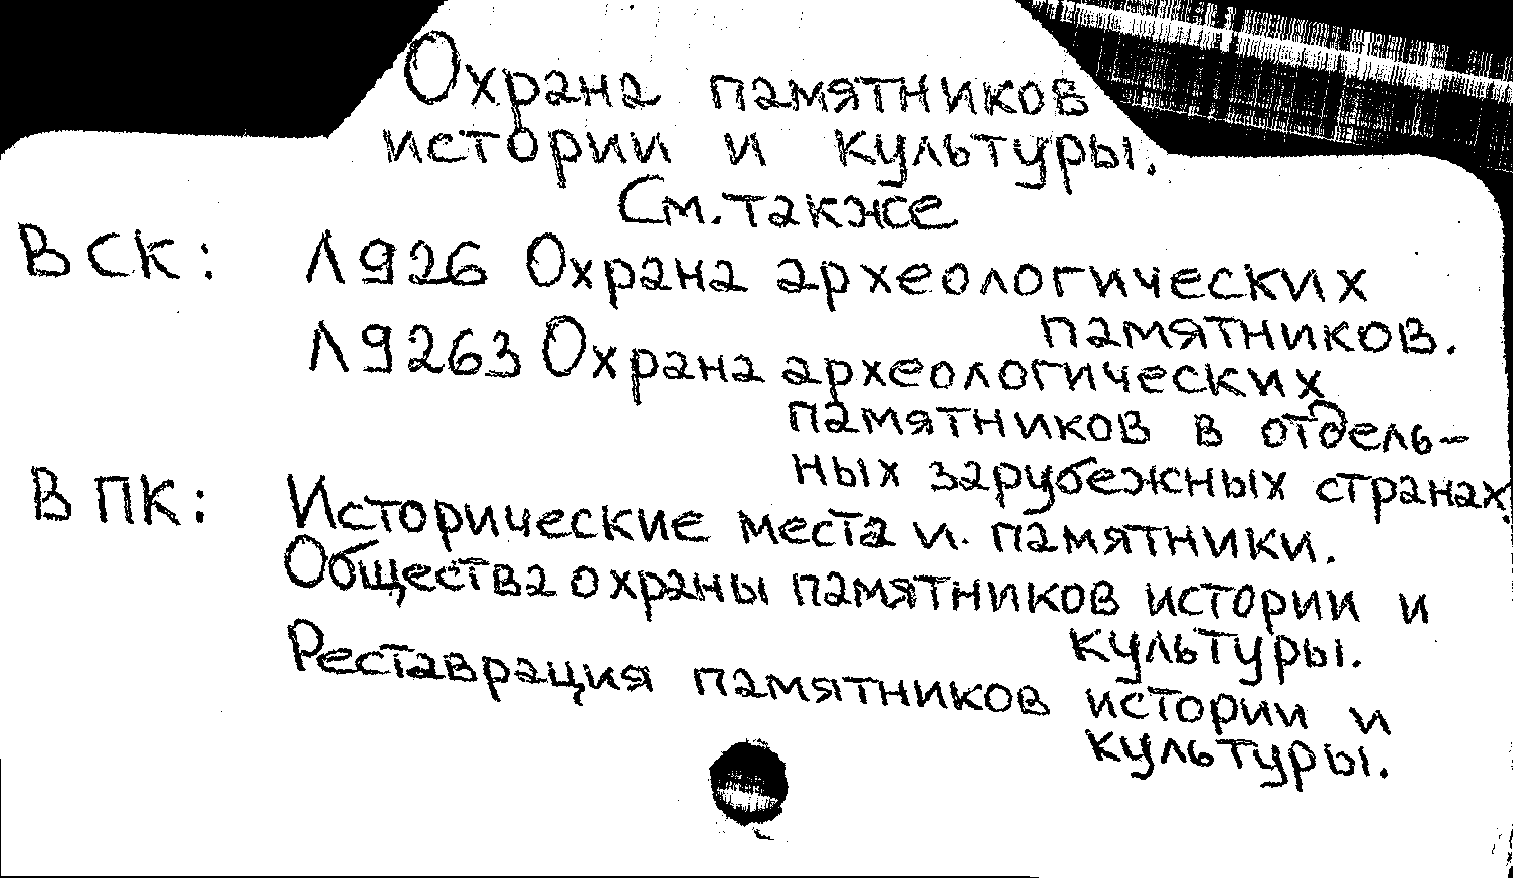 Охрана памятников
истории и культуры.
См. также
В СК: Л926 Охрана археологических
памятников.
Л9263 Охрана археологических
памятников в отдель-
ных зарубежных странах.
В ПК: Исторические места и памятники.
Общества охраны памятников истории и
культуры.
Реставрация памятников истории и
культуры.